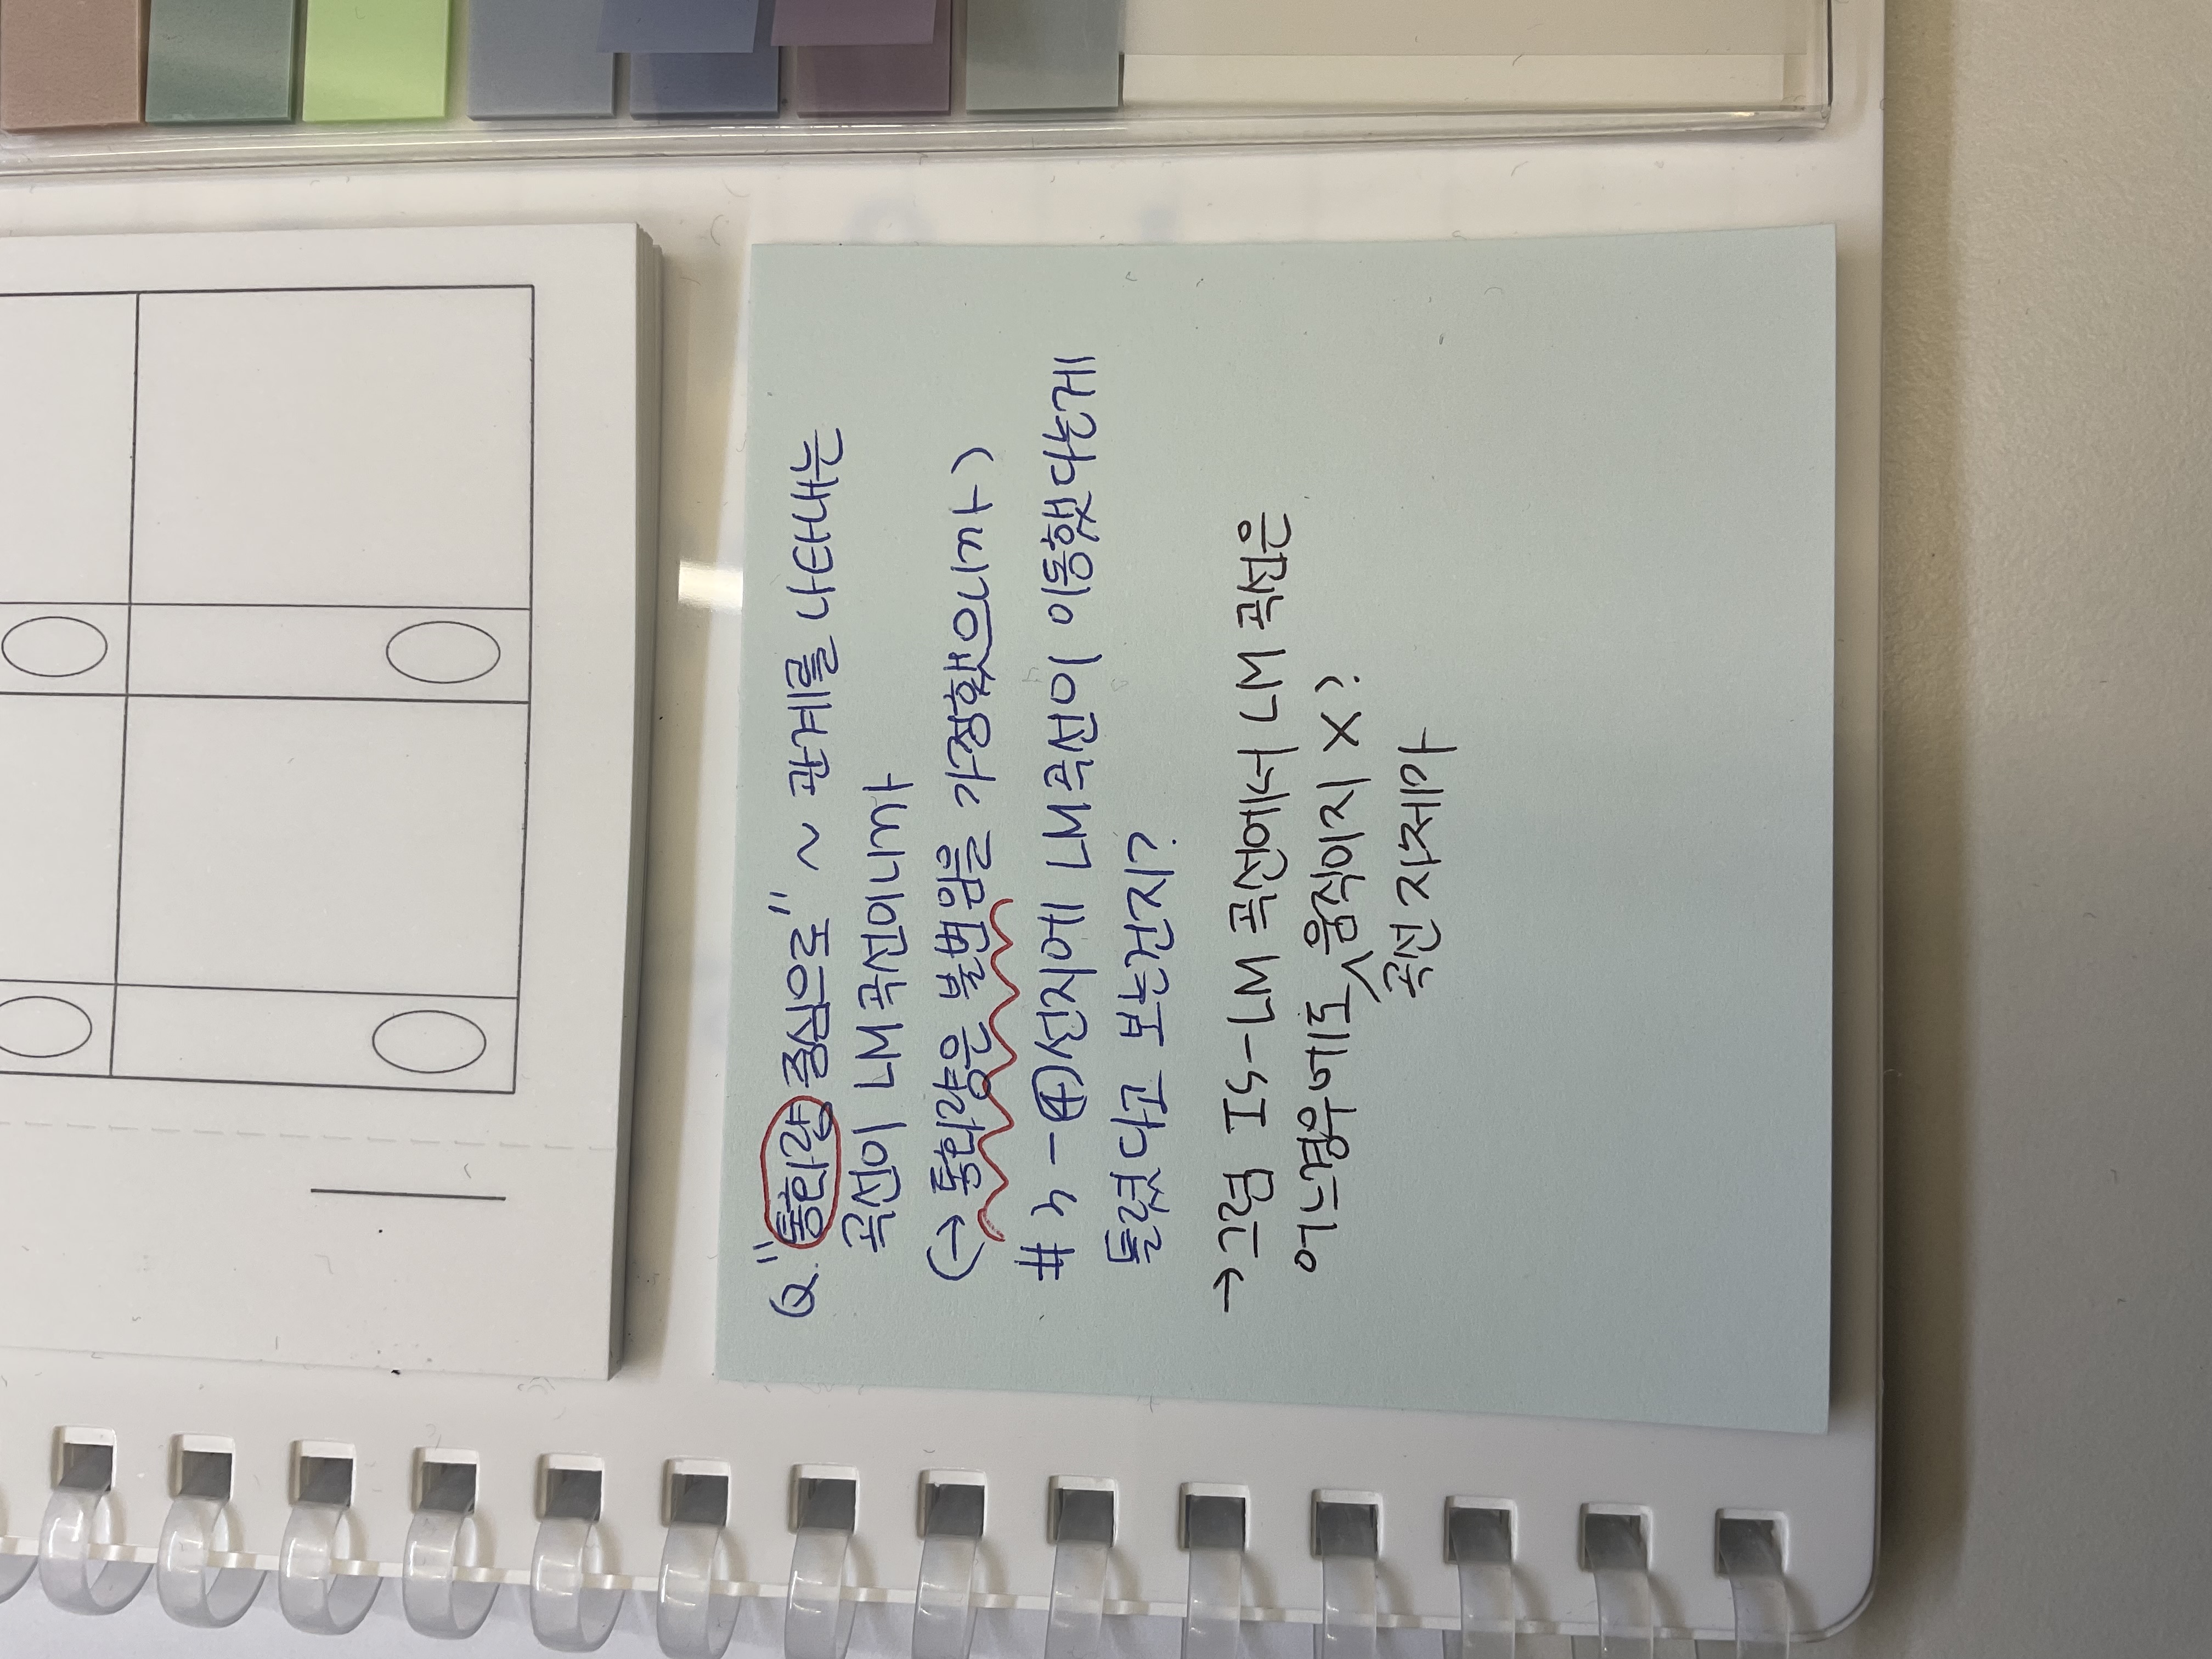 Q. "통화량 중심으로" ~ 관계를 나타내는
곡선이 LM곡선이니까
(→ 통화량은 불변임을 가정했으니까)
# 4-④선지에 LM곡선이 이동했다는게
틀렸다고 보는건지?
→ 그럼 IS-LM 곡선에서 LM 곡선은
어느경우에도 움직이지 X?
곡선 자체가